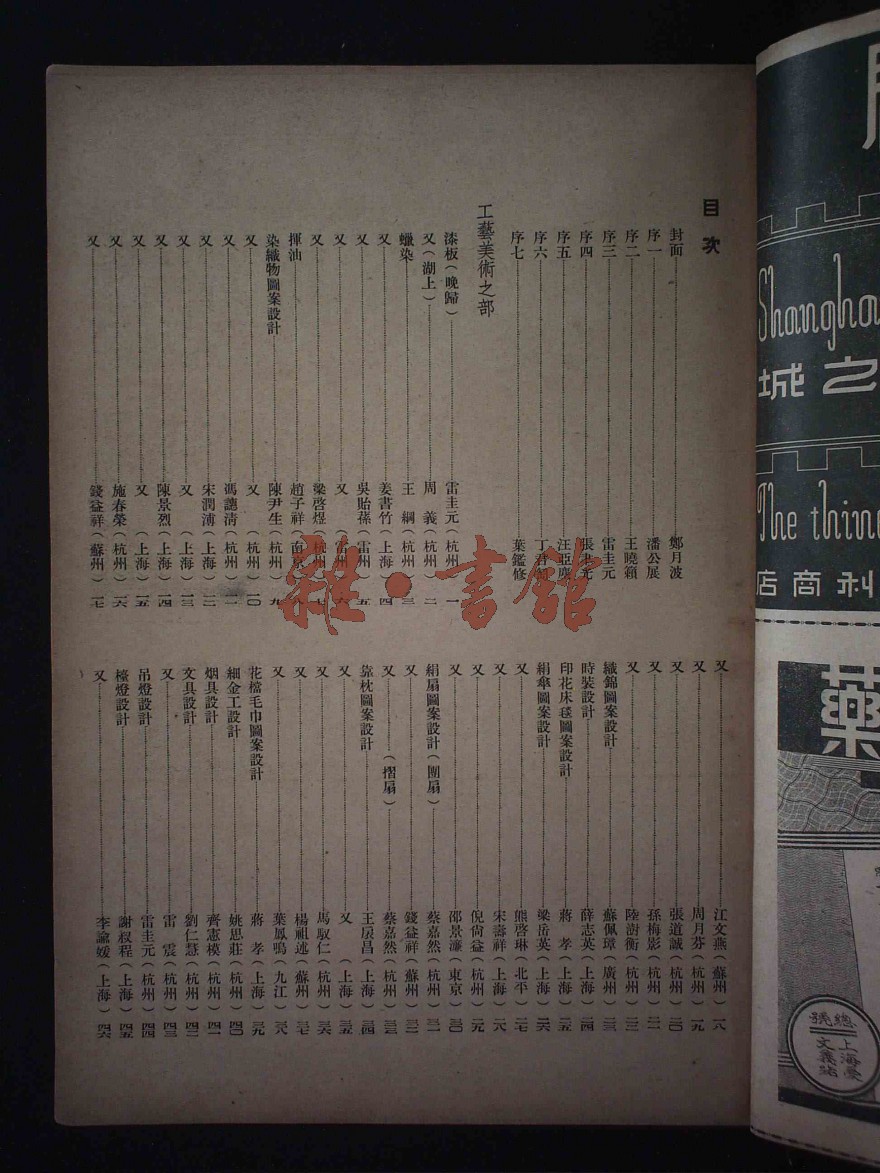 目次
封面 鄭月波
序一 潘公展
序二 王曉籟
序三 雷圭元
序四 張聿光
序五 汪亞塵
序六
序七 葉鑑修
工藝美術之部
漆板(晚歸) 雷圭元(杭州) 一
又(湖上) 周義(杭州) 二
蠟染 王綱(杭州) 三
又 姜書竹(上海) 四
又 吳貽蓀(雷州) 五
又 又(雷州) 六
又 梁啓煜(杭州) 七
揮油 趙子祥(南京)
染織物圖案設計 陳尹生(杭州) 九
又 又(杭州) 一〇
又 馮譓淸(杭州) 一一
又 宋潤浦(上海) 一二
又 又(上海) 一三
又 陳景烈(上海) 一四
又 又(上海) 一五
又 施春榮(杭州) 一六
又 錢益祥(蘇州) 一七
又 江文燕(蘇州) 一八
又 周月芬(杭州) 一九
又 張道誠(杭州) 二〇
又 孫梅影(杭州) 二一
又 陸澍衡(杭州) 二二
織錦圖案設計 蘇佩璋(廣州) 二三
時裝設計 薛志英(上海) 二四
印花床毯圖案設計 蔣孝(上海) 二五
絹傘圖案設計 梁岳英(上海) 二六
又 熊啓琳(北平) 二七
又 宋壽祥(上海) 二八
又 倪尙益(杭州) 二九
又 邵景濂(東京) 三〇
絹扇圖案設計(團扇) 蔡嘉然(杭州) 三一
又 錢益祥(蘇州) 三二
又(摺扇) 蔡嘉然(杭州) 三三
靠枕圖案設計 王戾昌(上海) 三四
又 又(上海) 三五
又 馬馭仁(杭州) 三六
又 楊祖述(蘇州) 三七
又 葉鳳鳴(九江) 三八
花檔毛巾圖案設計 蔣孝(上海) 三九
細金工設計 姚思莊(杭州) 四〇
烟具設計 齊憲模(杭州) 四一
文具設計 劉仁慧(杭州) 四二
又 雷震(杭州) 四三
吊燈設計 雷圭元(杭州) 四四
檯燈設計 謝叔程(上海) 四五
又 李諭媛(上海) 四六
雜·書館
Shangha
城之
The thin
店商利
藥
號總
上海愛
文義路